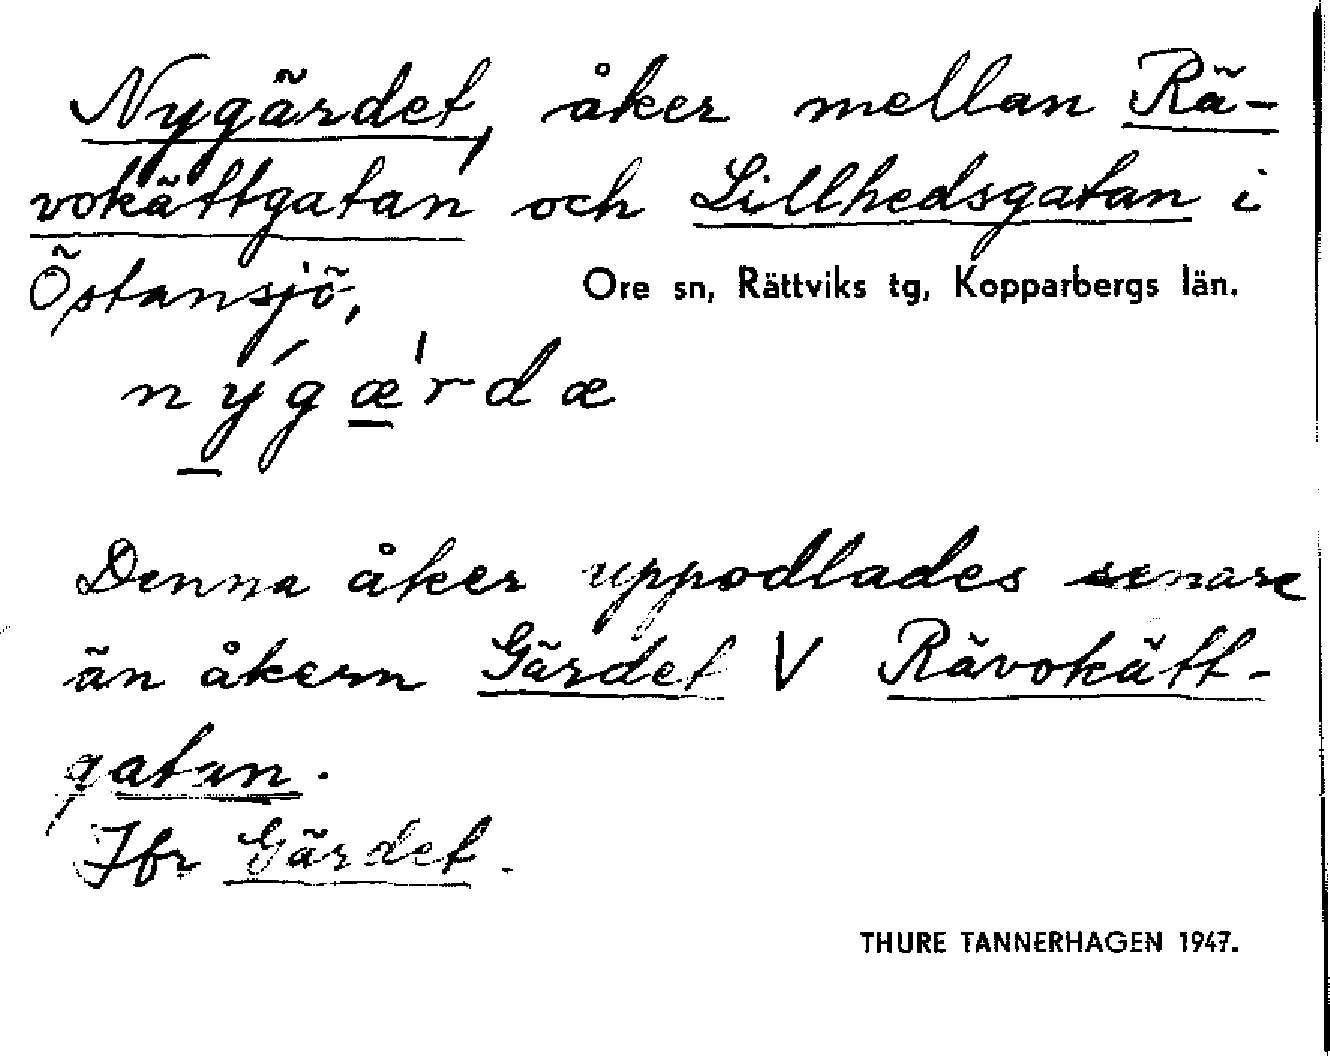 Nygärdet, åker mellan Rä-
vokättgatan och Lillhedsgatan i
Östansjö, Ore sn, Rättviks tg, Kopparbergs län.
nýgæ̲'rdæ
Denna åker uppodlades senare
än åkern Gärdet V Rävokätt-
gatan.
Jfr Gärdet.
THURE TANNERHAGEN 1947.